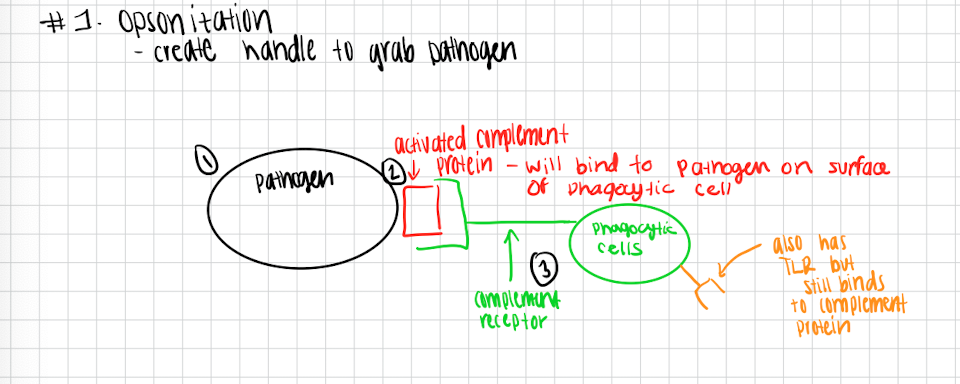 #1. Opsonitation
- create handle to grab pathogen
①
pathogen
②
activated complement
protein - will bind to pathogen on surface
of phagocytic cell
phagocytic
cells
③
complement
receptor
also has
TLR but
still binds
to complement
protein